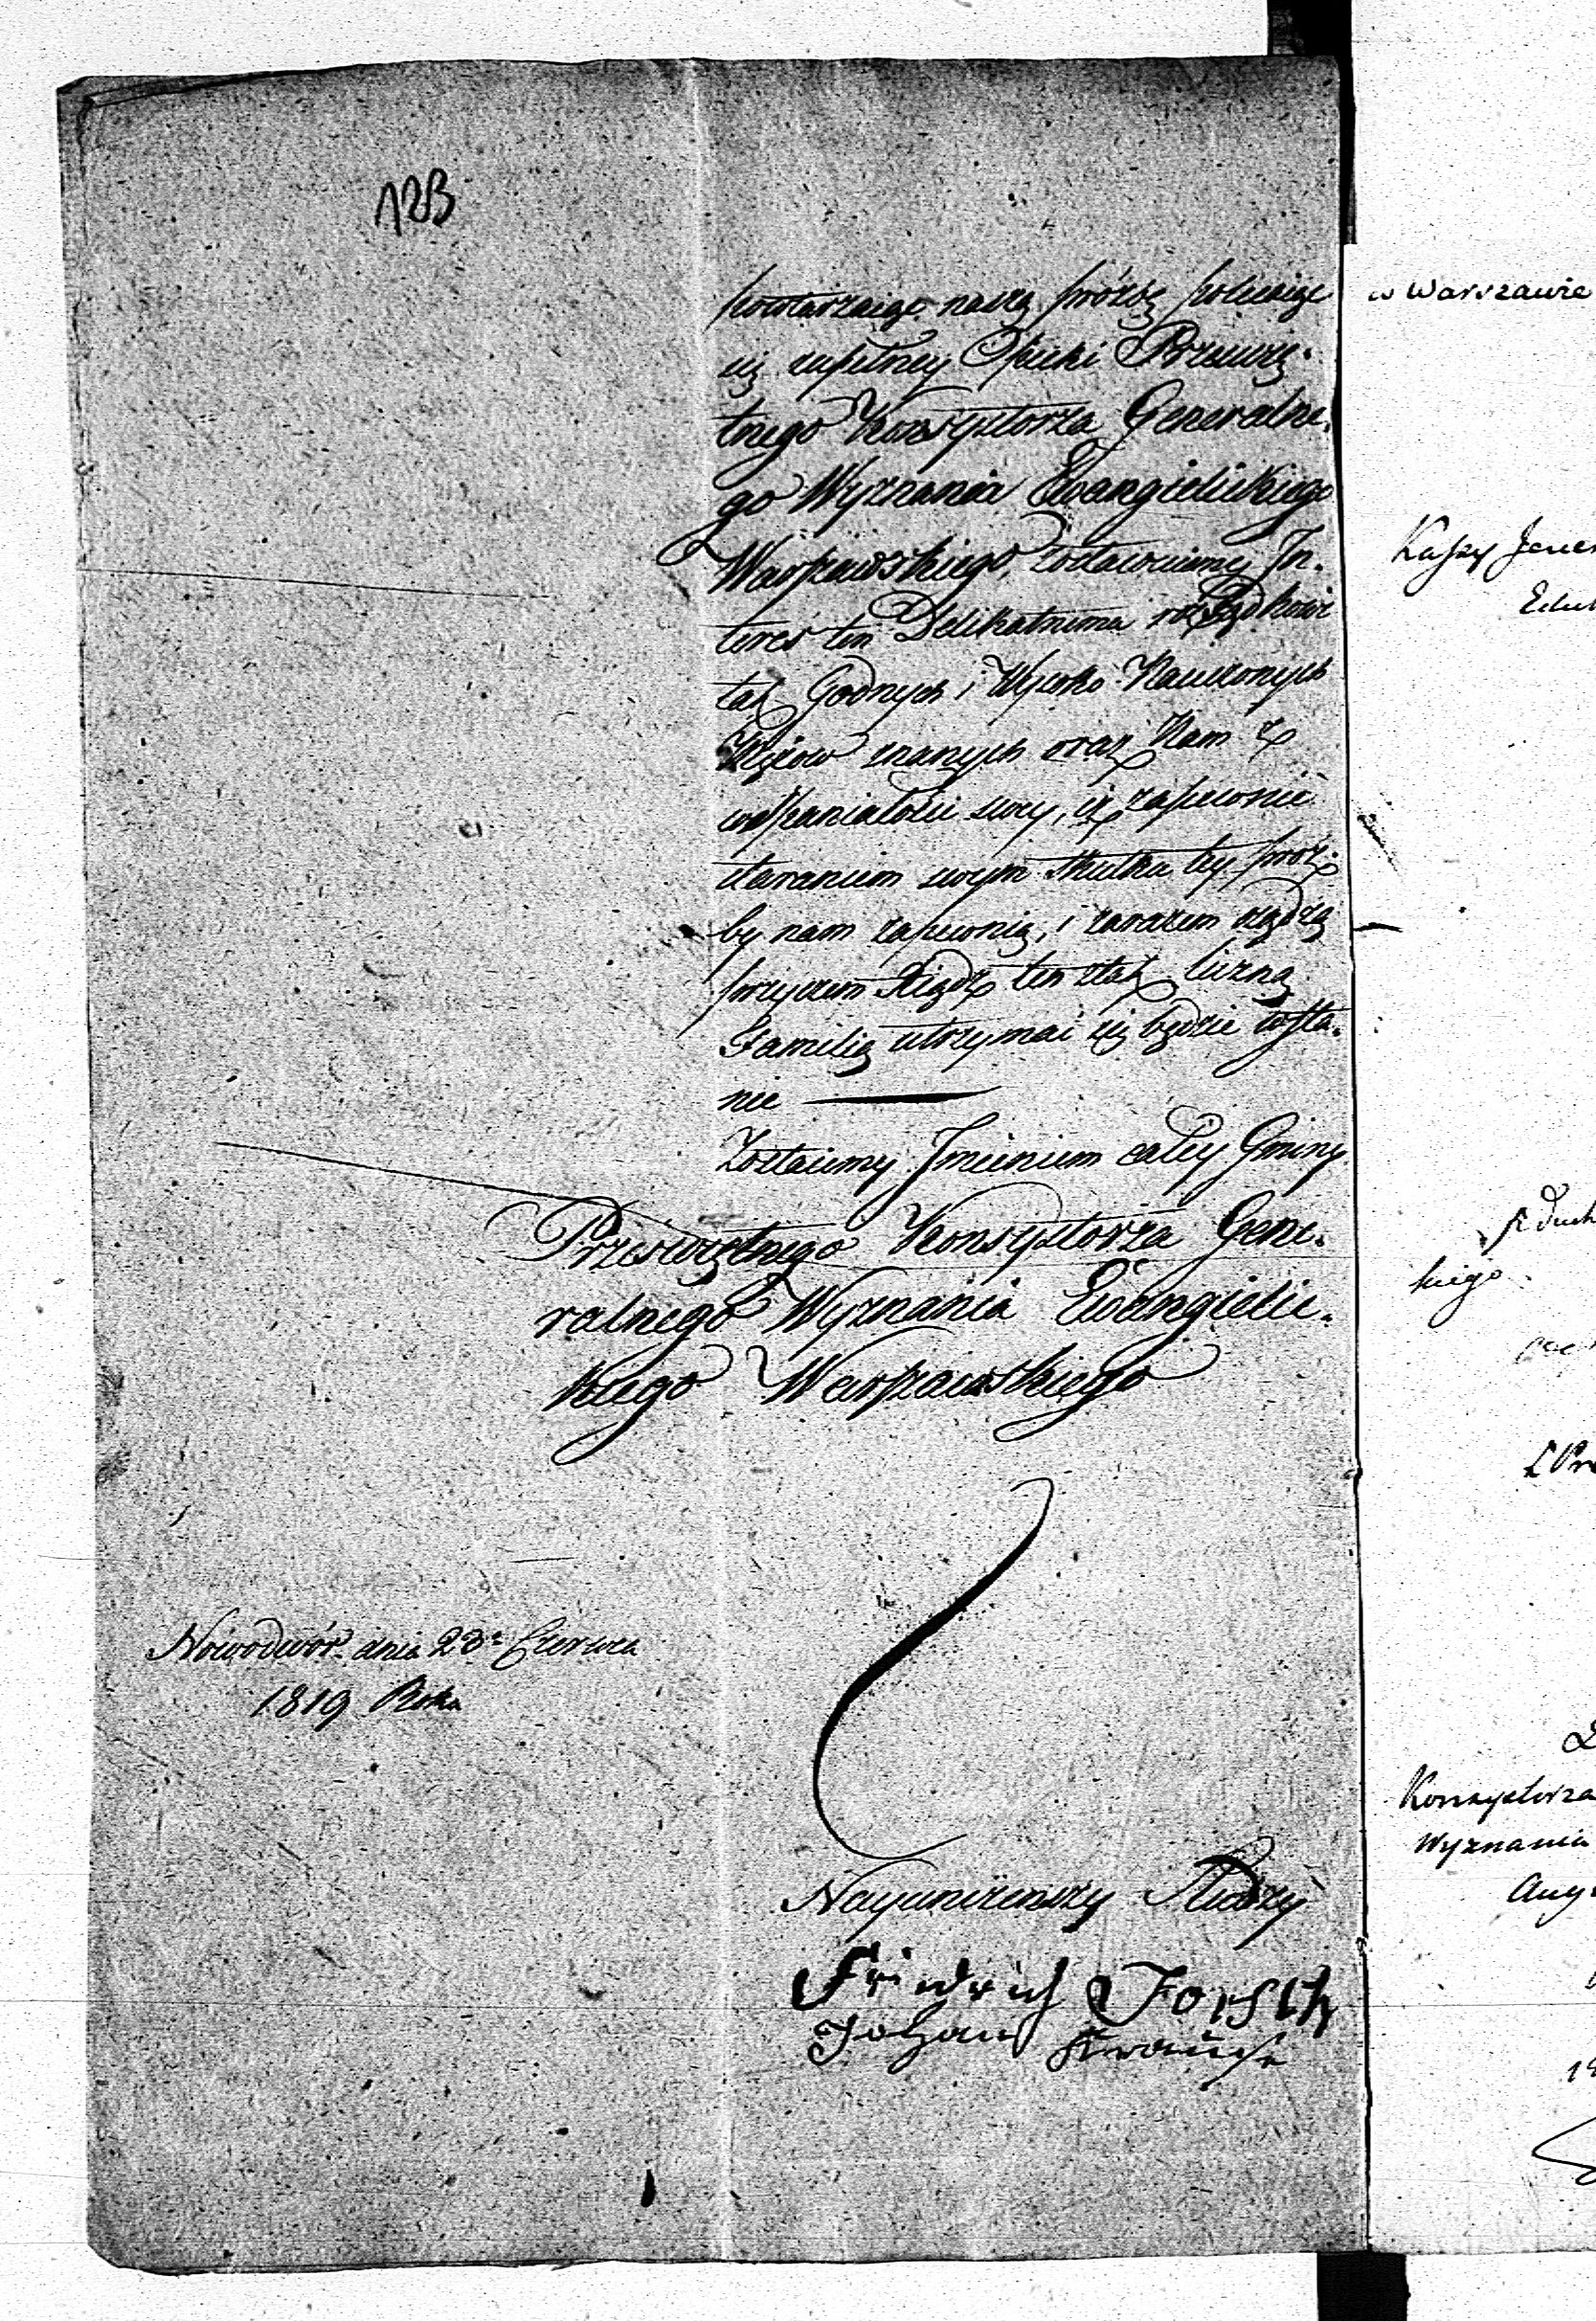 123
powtarzaiąc naszą prózbę poleciaiąc
się zupełney Opieki Prześwię-
tnego Konsystorza Generalne-
go Wyznania Ewangielickiego
Warszawskiego, zostawuiemy In-
teres ten Delikatnema rozsądkowi
tak Godnych i Wysoko Nauczonych
Mężow znanych oraz Nam z
wspaniałości swey, iż zapewnie
staraniem swym skutku tey proz-
by nam zapewnią, i zarazem osądzą
przyczem Xiądz ten z tak liczną
Familią utrzymać się będzie wsta-
nie
Zostaiemy Imieniem całey Gminy
Przeświętnego Konsystorza Gene-
ralnego Wyznania Ewangielic-
kiego Warszawskiego
Nowodwór dnia 23º Czerwca
1819 Roku
Nayunizenszy Słudzy
Friedrich Forsch
Johann Krause
w Warszawie
Kassy Jener
Eduk
kiego
Konsystorza
Wyznania
Aug